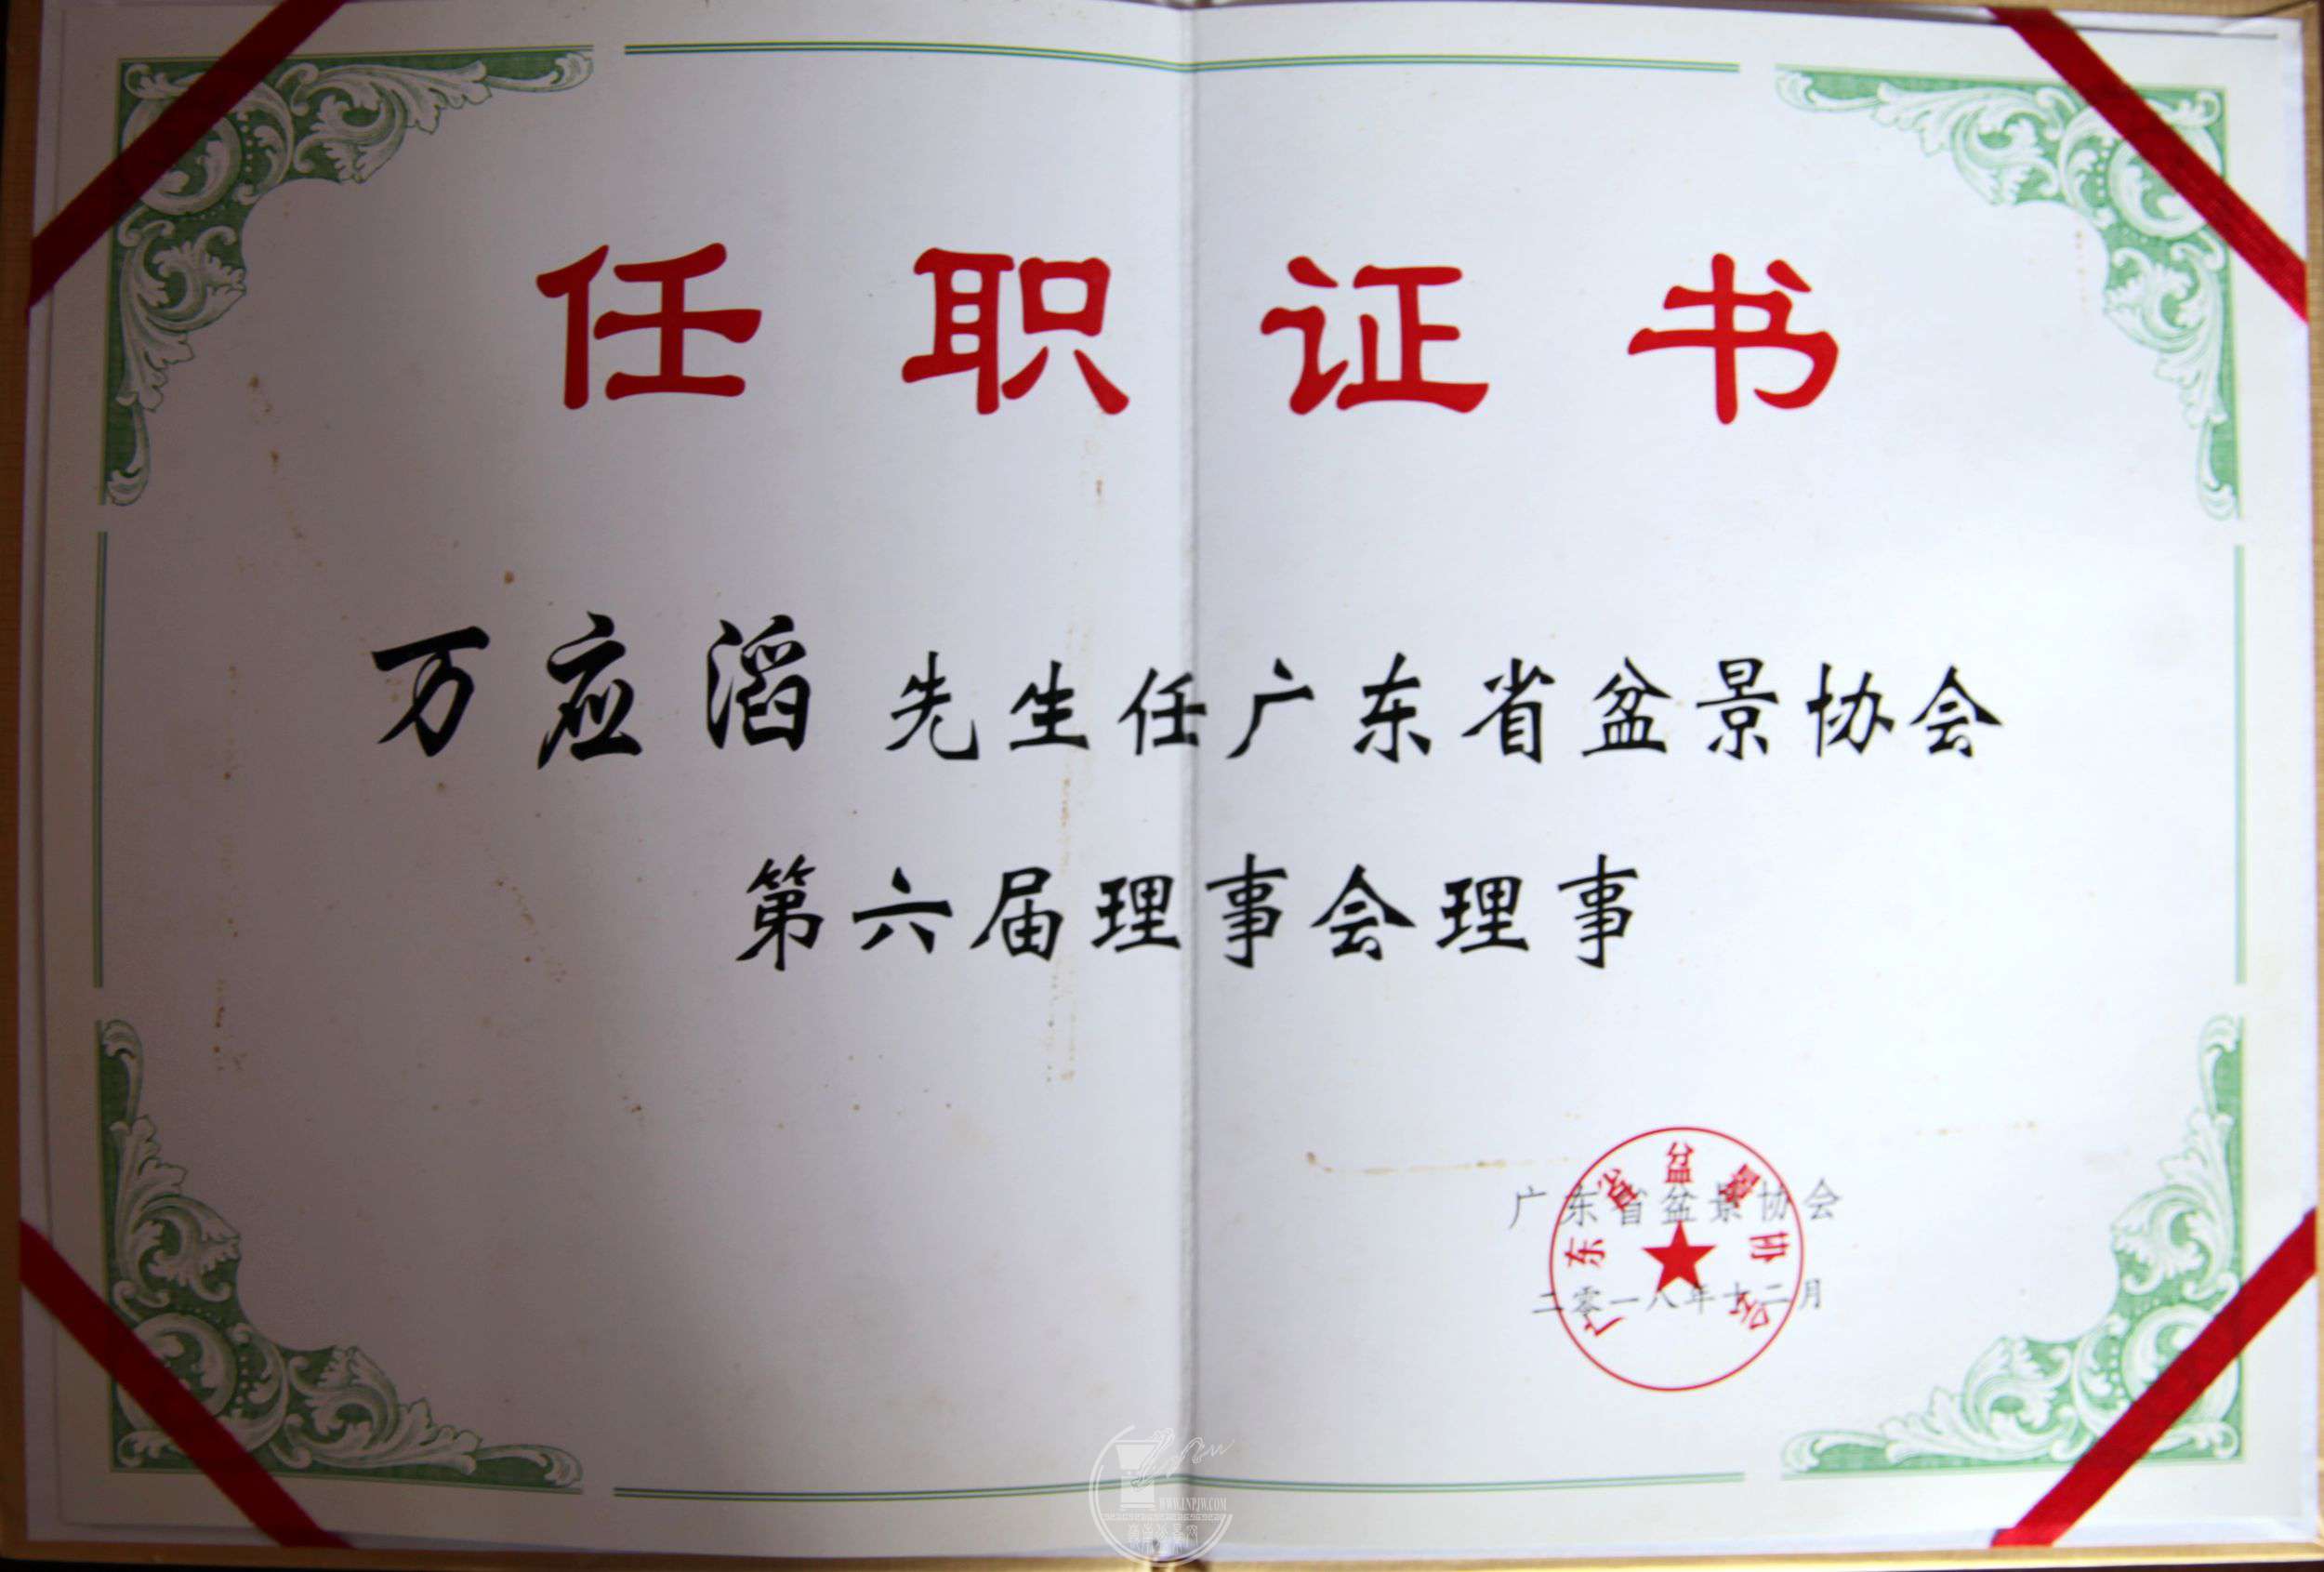 任职证书
万应滔 先生任广东省盆景协会
第六届理事会理事
广东省盆景协会
二零一八年十二月
广东省盆景协会
WWW.LNPJW.COM